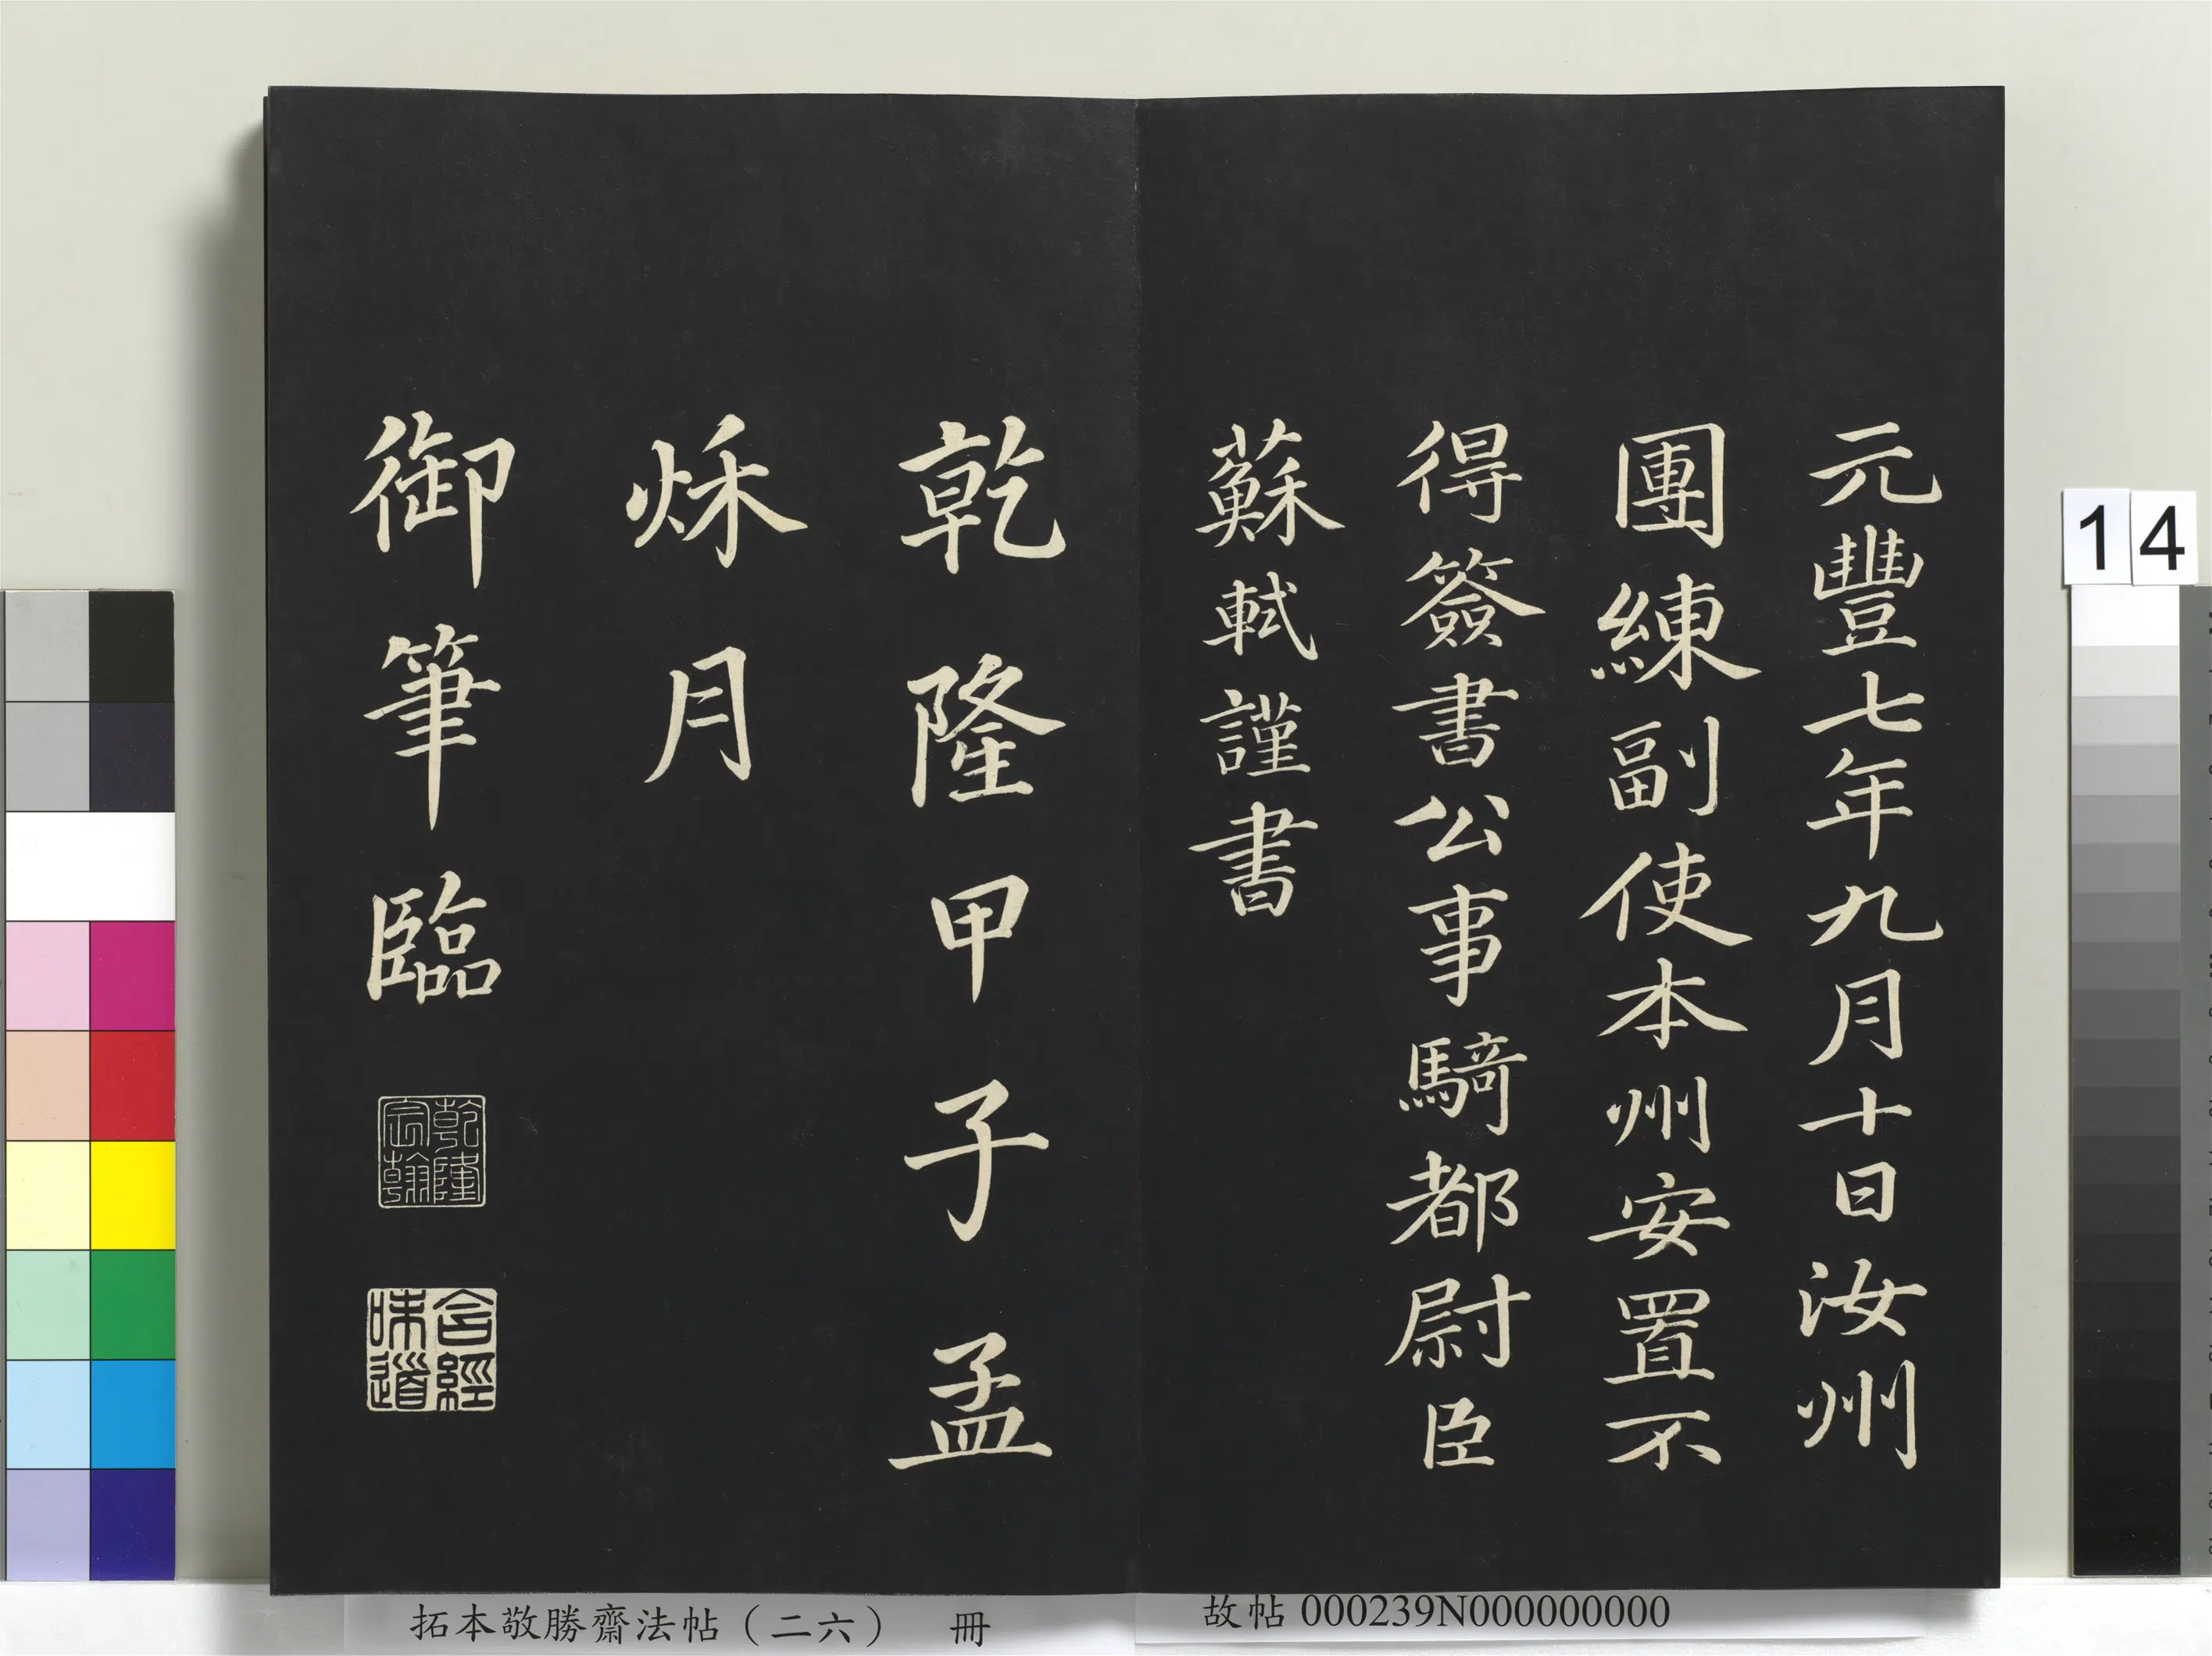 元豐七年九月十日汝州
團練副使本州安置不
得簽書公事騎都尉臣
蘇軾謹書
乾隆甲子孟
秌月
御筆臨
乾隆
宸翰
含經
味道
14
拓本敬勝齋法帖（二六） 冊
故帖 000239N000000000